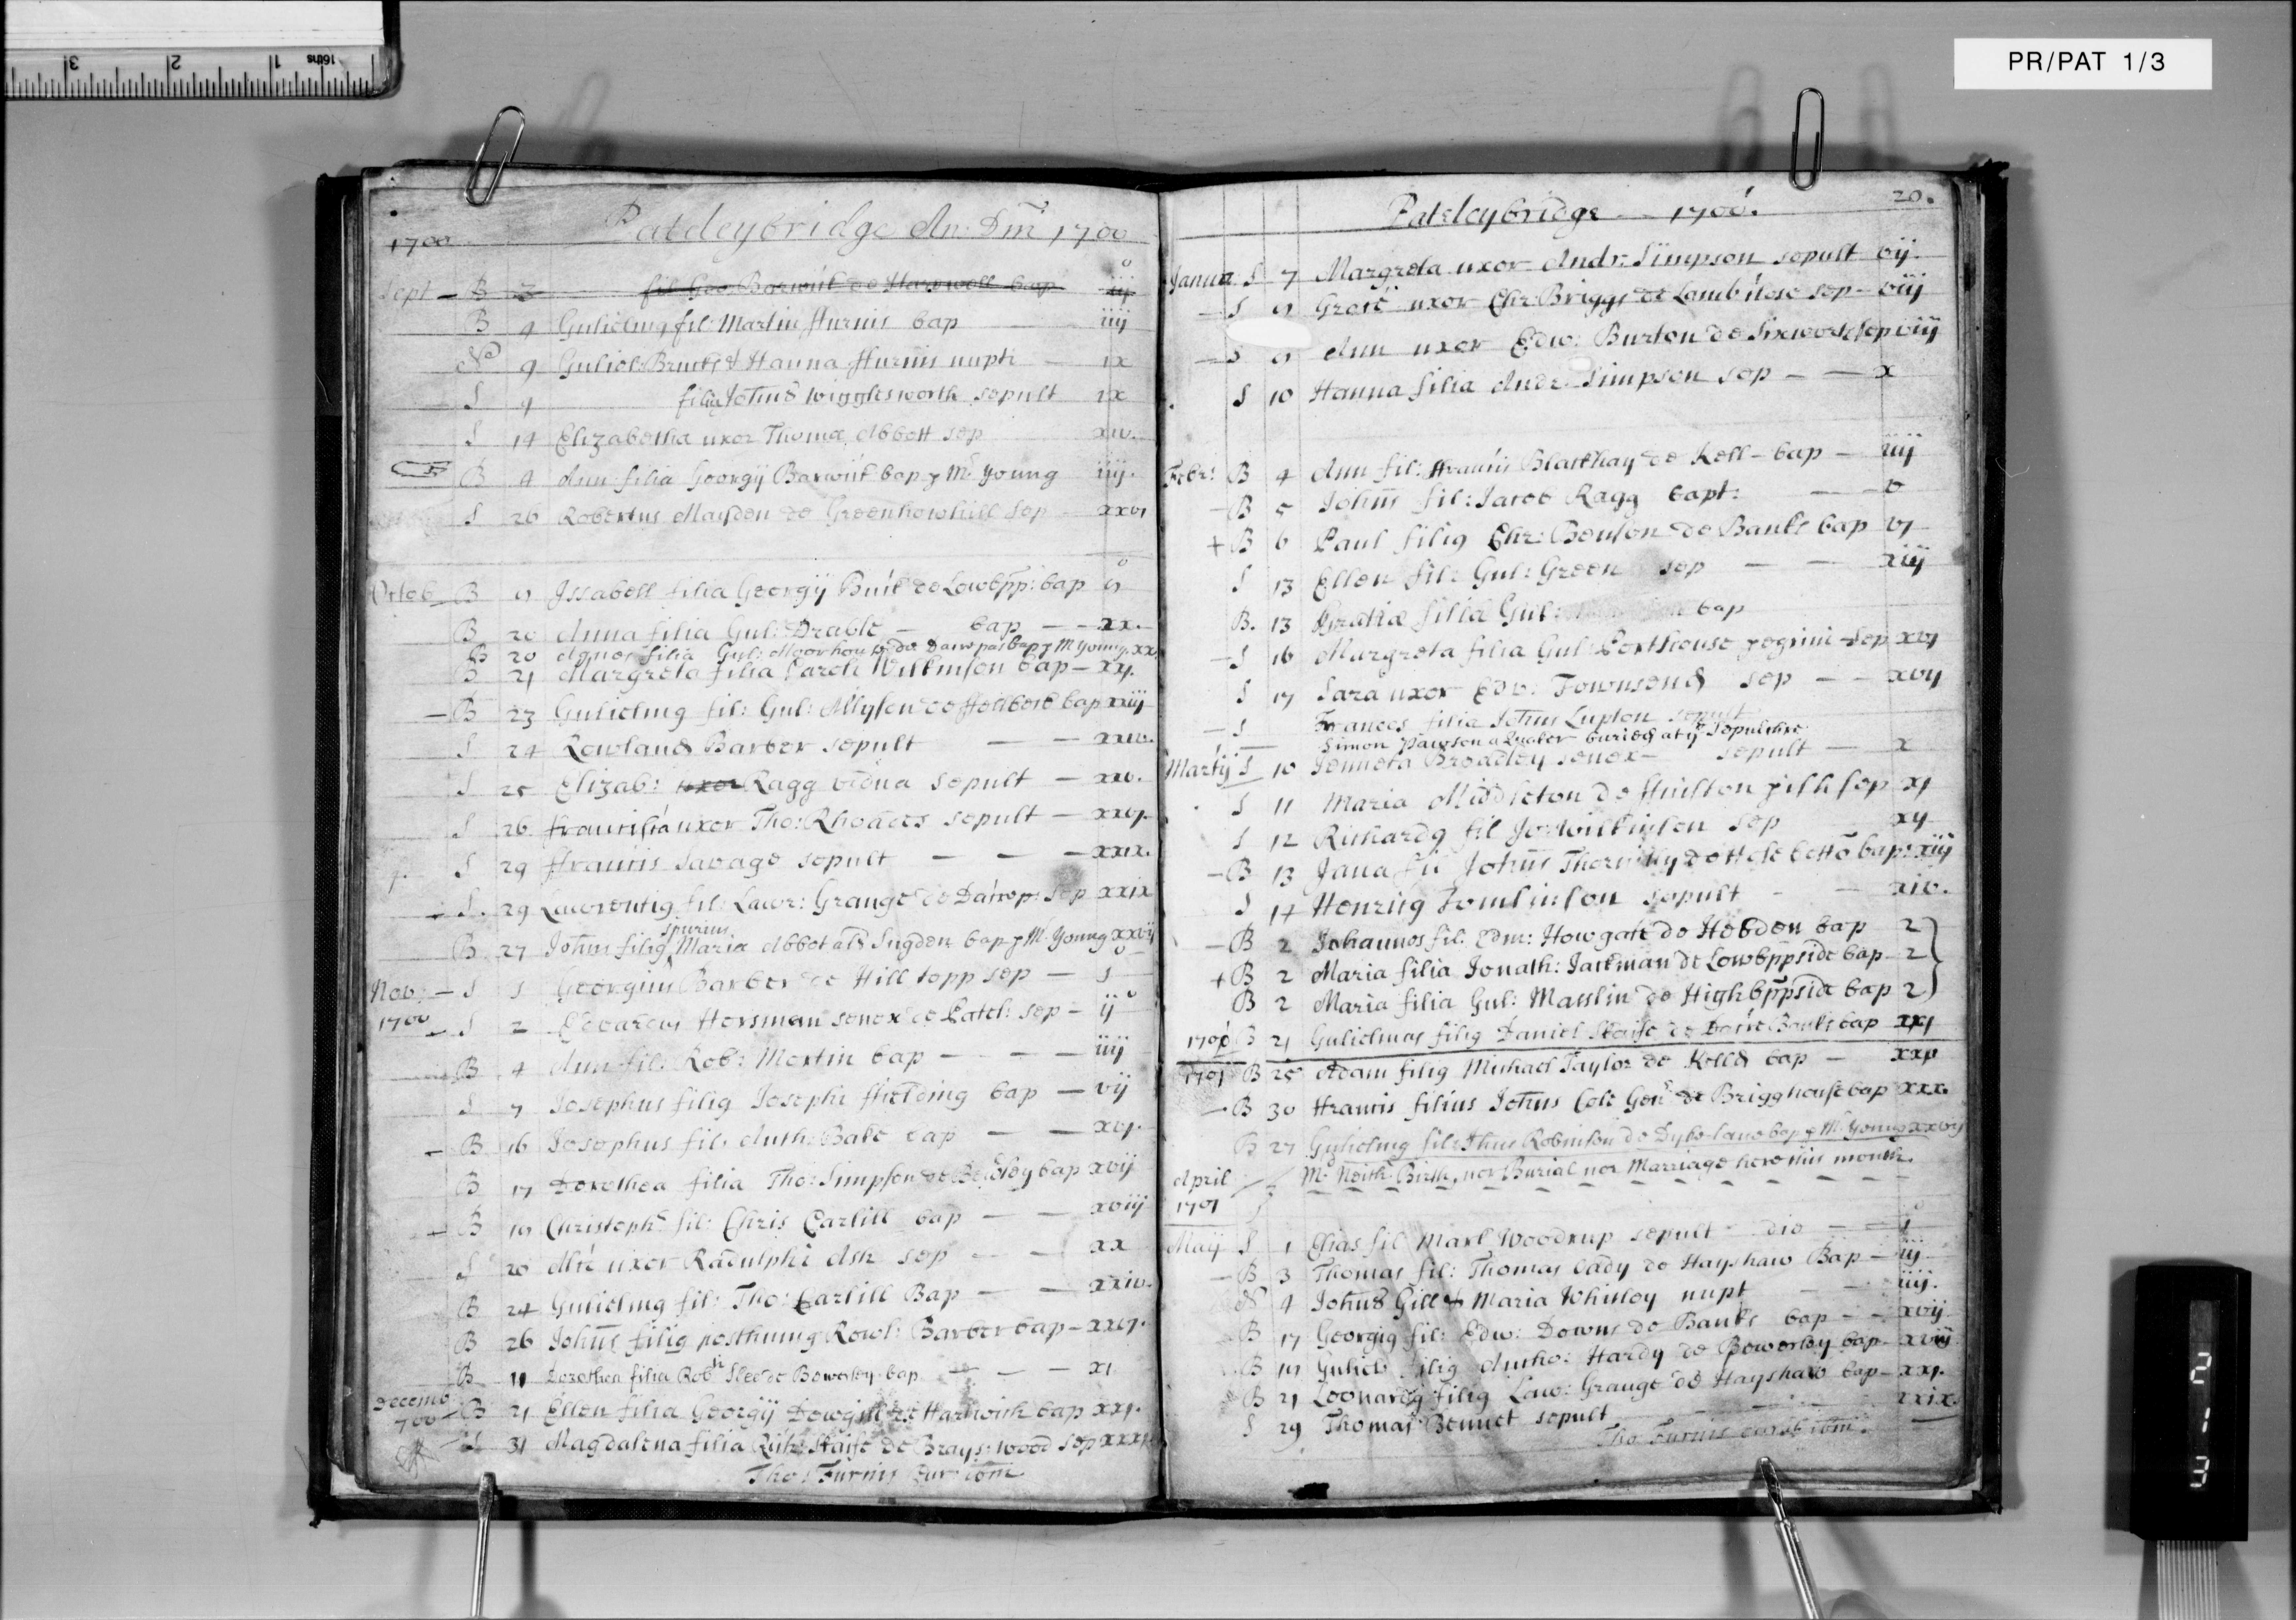 PR/PAT 1/3
3 2 1 16ths
1700 Pateleybridge An: Dm 1700
Sept - B 3 fil Geo: Barwick de Harwell bap iij
B 4 Gulielmq fil: Martin ffurnis bap iiij
N 9 Guliel: & Hanna ffurnis nupti - ix
S 9 filia Johns Wigglesworth sepult ix
S 14 Elizabetha uxor Thoma Abbott sep xiv.
B 4 Ann filia Georgij Barwick bap p Mr Young iiij.
S 26 Robertus Mayden de Greenhowhill sep xxvj
Octob B 9 Issabell filia Georgij de Lowbpp: bap 9
B 20 Anna filia Gul: Drable - bap - - xx.
B 20 Agnes filia Gul: Moorhouse de bap p Mr Young. xx
B 21 Margreta filia Caroli Wilkinson bap - xxj.
- B 23 Gulielmq fil: Gul: bap xxiij
S 24 Rowland Barber sepult - - xxiv.
S 25 Elizab: uxor Ragg vidua sepult - xxv.
S 26 uxor Tho: Rhoades sepult - xxvj.
S 29 ffrancis Savage sepult - - - xxix.
S. 29 Lawrentiq fil: Lawr: Grange de sep xxix
spurius
B 27 Johns filiq Maria Abbot als Sugden bap p Mr Young xxvij
Nov: - S 1 Georgius Barber de Hill topp sep - 1
1700 S 2 Horsman senex de Patel: sep - ij
B 4 Ann fil: Rob: Martin bap - - - iiij
S 7 Josephus filiq Josephi ffielding bap - vij
- B 16 Josephus fil: Anth: Bake bap - - xvj.
B 17 Dorothea filia Tho: Simpson de bap xvij
+ B 18 Christoph fil: Chris Carlill bap - - xviij
S 20 uxor Radulphi Ash sep - - xx
B 24 Gulielmq fil: Tho: Carlill Bap - - xxiv.
B 26 Johns filiq posthumq Rowl: Barber bap - xxvj.
B 11 Dorothea filia Rob de Bewerley bap - - xj.
Decemb
1700 - B 21 Ellen filia Georgij de Harwith bap xxj.
S 31 Magdalena filia Rich: Skaife de Brays: wood sep xxxj
Tho: Furnis Cur: ibm
Pateleybridge - 1700. 20.
Janua S 7 Margreta uxor Andr: Simpson sepult vij.
- S 9 uxor Chr: Briggs de sep - viij
- S 9 Ann uxor Edw: Burton de sep viij
S 10 Hanna filia Andr: Simpson sep - - x
Febr: B 4 Ann fil: ffrancis Blackhay de Kell - bap - iiij
- B 5 Johns fil: Jacob Ragg bapt: - - v
+ B 6 Paul filiq Chr: Benson de Banks bap vj
S 13 Ellen fil: Gul: Green sep - - xiij
B. 13 Gratia filia Gul: bap
- S 16 Margreta filia Gul: sep xvj
S 17 Sara uxor Edw: Townsend sep - - xvij
- S Frances filia Johns Lupton sepult
Simon Pawson a Quaker buried at ye Sepulchre
Martij S 10 Jenneta Broadley senex - sepult - x
S 11 Maria Middleton de sep xj
S 12 Richardq fil Jo: Wilkinson sep xij
- B 13 Jana fil Johns bap: xiij
S 14 Henriq Tomlinson sepult - - xiv.
- B 2 Johannes fil: Edm: Howgate de Hebden bap 2
+ B 2 Maria filia Jonath: Jackman de Lowbppside bap - 2
B 2 Maria filia Gul: de Highbppside bap 2
1700 B 21 Gulielmus filiq Daniel Skaife de Banks bap xxj
1701 B 25 Adam filiq Michael Taylor de Kells bap - xxv
- B 30 ffrancis filius Johns Cole Gen de Brigghouse bap xxx.
B 27 Gulielmq fil: Robinson de Dyke-lane bap p Mr Young xxvij
April Md Neith: Birth, nor Burial nor Marriage here this month.
1701
Maij S 1 Elias fil Mark Woodrup sepult die - - j
- B 3 Thomas fil: Thomas Cady de Hayshaw Bap - iij
N 4 Johns Gill & Maria Whitley nupt - - iiij.
B 17 Georgiq fil: Edw: Downs de Banks bap - - xvij
B 18 Guliel filiq Antho: Hardy de Bewerley bap - xviij
B 21 Leonardq filiq Law: Grange de Hayshaw bap - xxj.
S 29 Thomas Bennet sepult xxix.
Tho Furnis ibm.
213